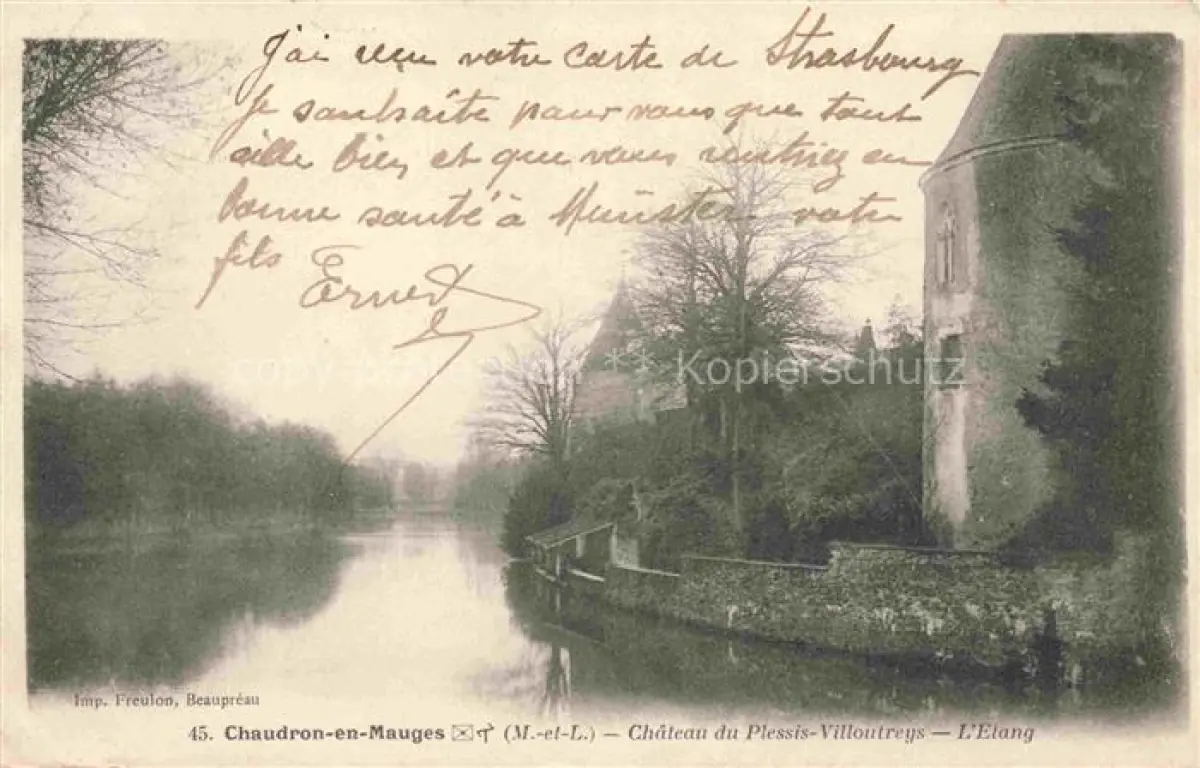 J'ai reçu votre carte de Strasbourg
Je souhaite pour vous que tout
aille bien et que vous rentriez en
bonne santé à Münster votre
fils
Ernest
copyright ** Kopierschutz **
Imp. Freulon, Beaupréau
45. Chaudron-en-Mauges (M.-et-L.) — Château du Plessis-Villoutreys — L'Etang